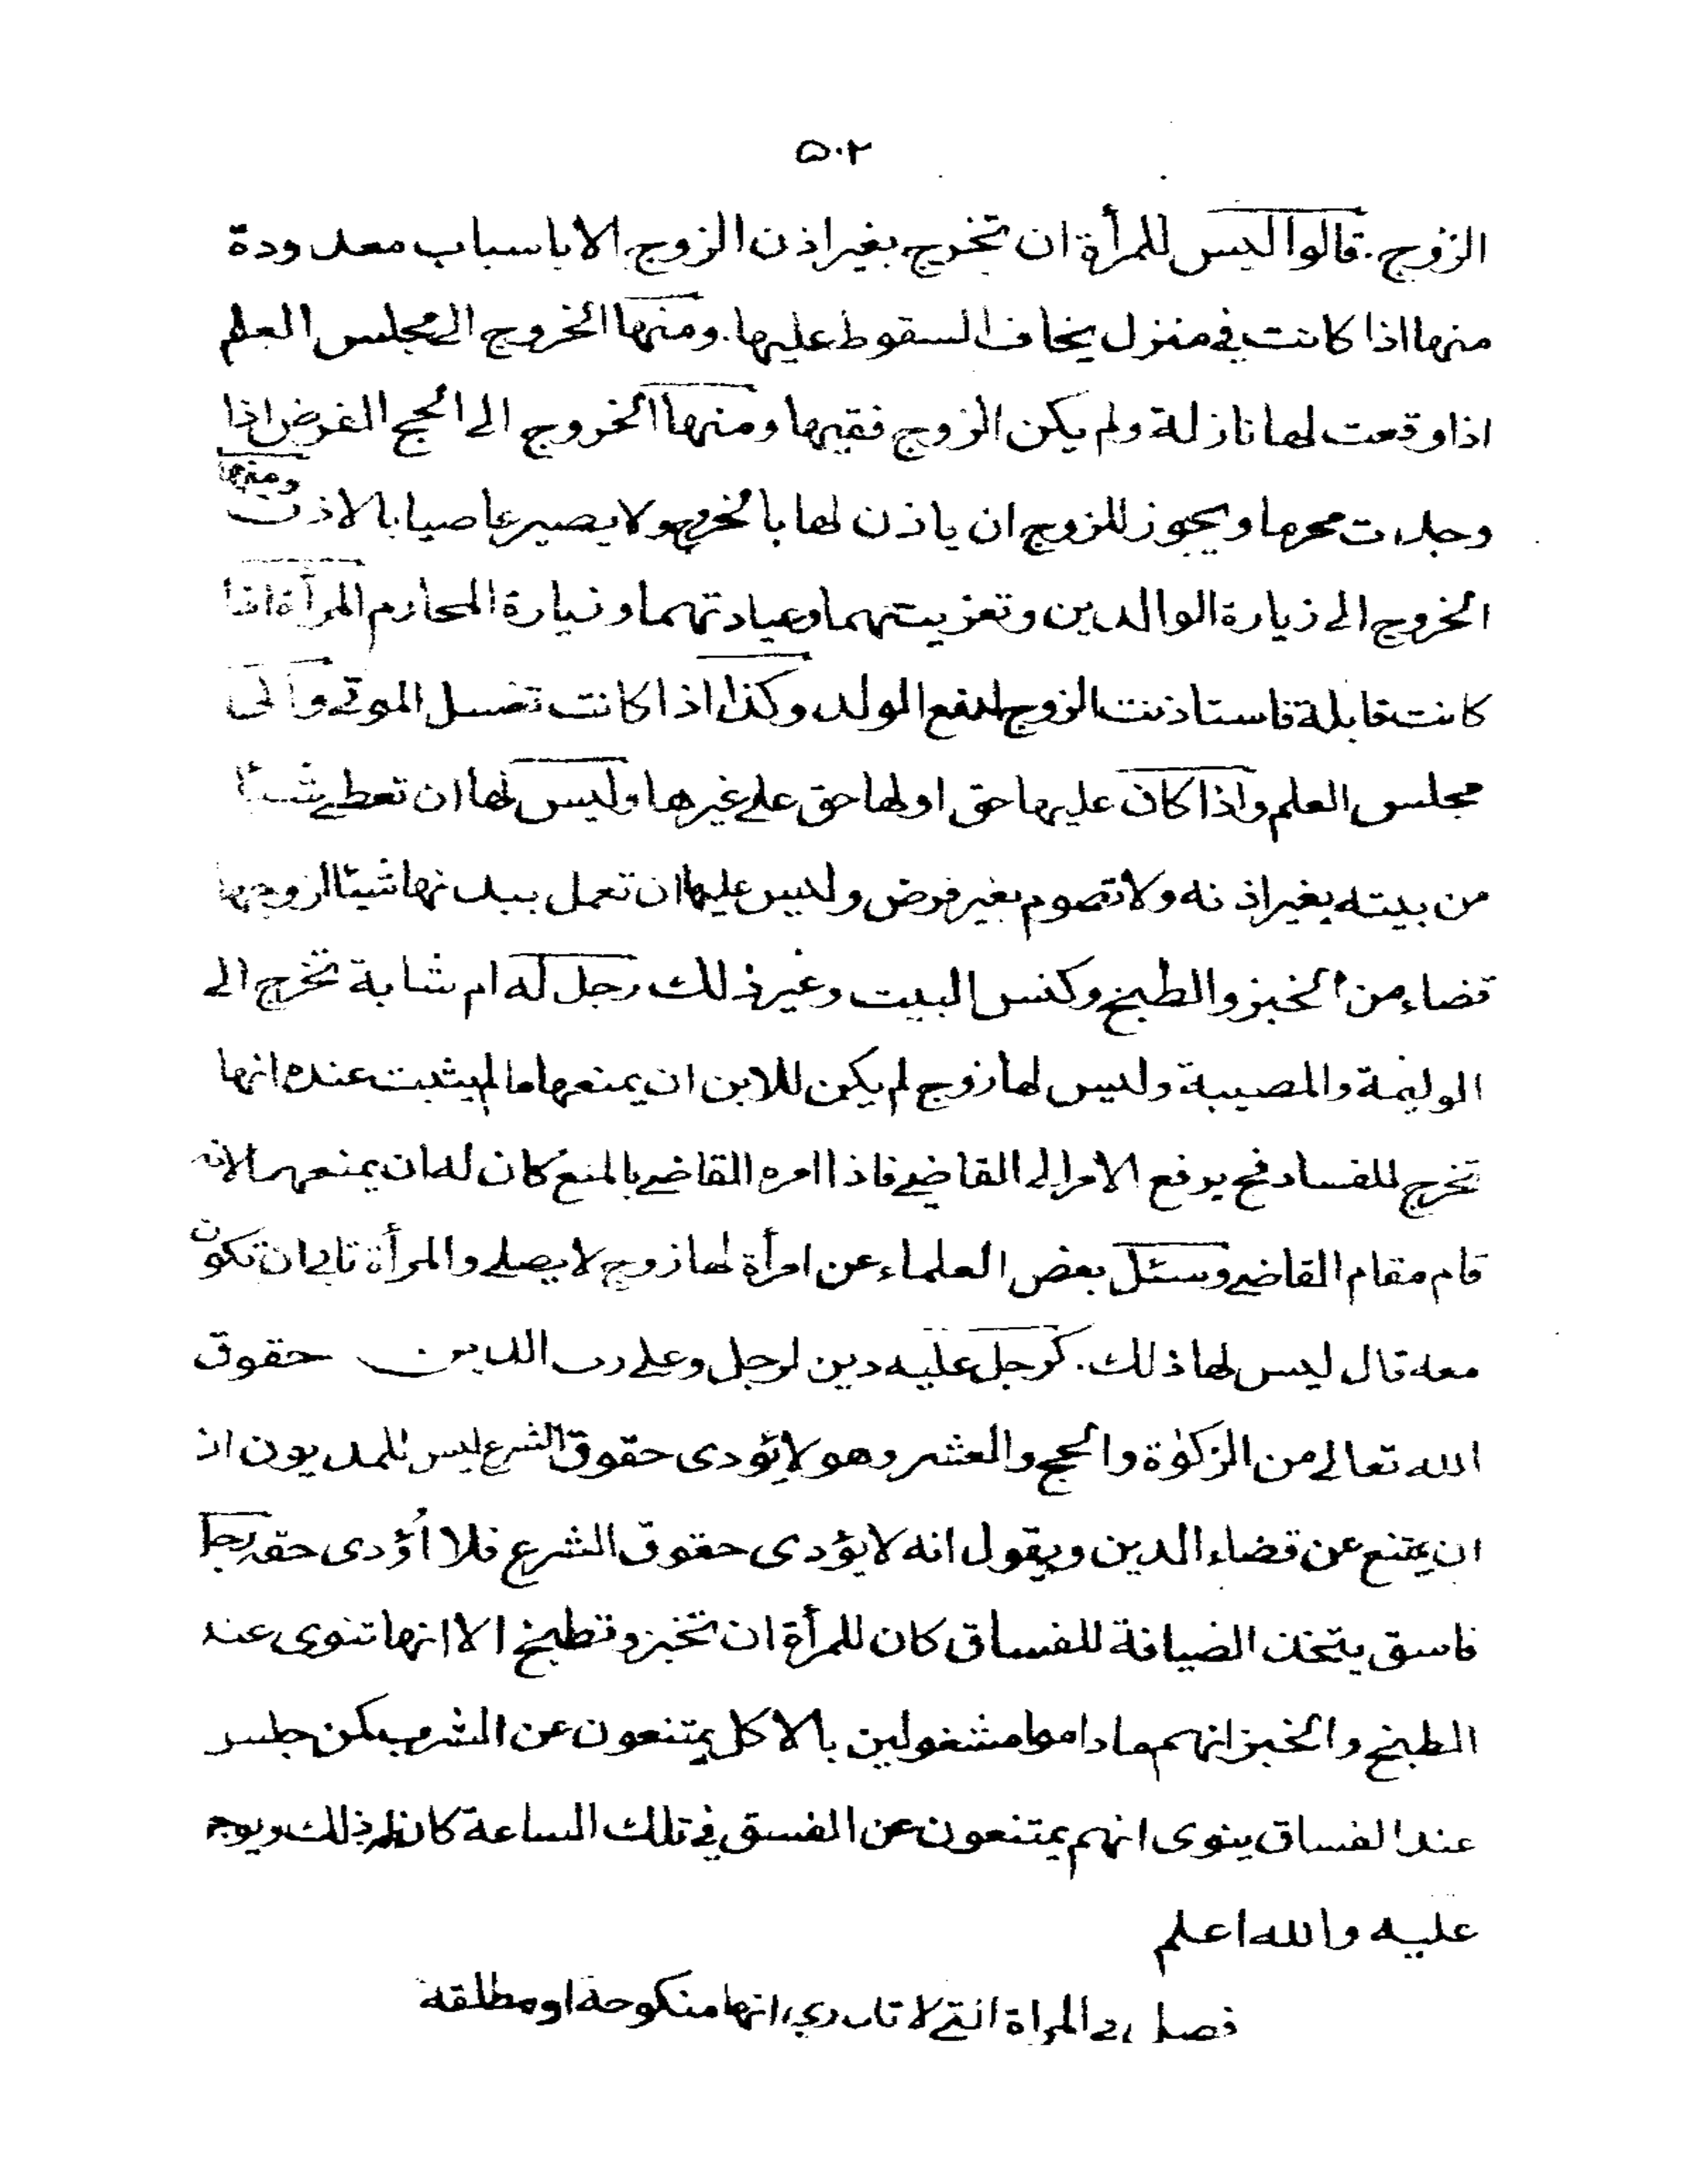 ۵۰۲
الزوج. قالوا ليس للمرأة ان تخرج بغير اذن الزوج الا باسباب معدودة
منها اذا كانت في منزل يخاف السقوط عليها. ومنها الخروج الى مجلس العلم
اذا وقعت لها نازلة ولم يكن الزوج فقيها ومنها الخروج الى الحج الفرض اذا
وجدت محرما ويجوز للزوج ان ياذن لها بالخروج ولا يصير عاصيا بالاذن ومنها
الخروج الى زيارة الوالدين وتعزيتهما وعيادتهما وزيارة المحارم المرأة اذا
كانت قابلة فاستاذنت الزوج لدفع الولد وكذا اذا كانت تغسل الموتى والى
مجلس العلم واذا كان عليها حق او لها حق على غيرها وليس لها ان تعطى شيئا
من بيته بغير اذنه ولا تصوم بغير فرض وليس عليها ان تعمل بيدنها شيئا لزوجها
قضاء من الخبز والطبخ وكنس البيت وغير ذلك رجل له ام شابة تخرج الى
الوليمة والمصيبة وليس لها زوج لم يكن للابن ان يمنعها ما لم يثبت عنده انها
تخرج للفساد فح يرفع الامر الى القاضي فاذا امره القاضي بالمنع كان له ان يمنعها لانه
قام مقام القاضي وسئل بعض العلماء عن امرأة لها زوج لا يصلي والمرأة تابى ان تكون
معه قال ليس لها ذلك. كرجل عليه دين لرجل وعلى رب الدين حقوق
الله تعالى من الزكوٰة والحج والعشر وهو لا يؤدى حقوق الشرع ليس للمديون ان
ان يمتنع عن قضاء الدين ويقول انه لا يؤدى حقوق الشرع فلا أؤدى حقه رجل
فاسق يتخذ الضيافة للفساق كان للمرأة ان تخبز وتطبخ الا انها تنوى عند
الطبخ والخبز انهم ما داموا مشغولين بالاكل يمتنعون عن الشرب كمن جلس
عند الفساق ينوى انهم يمتنعون عن الفسق في تلك الساعة كان له ذلك ويوجر
عليه والله اعلم
فصل في المراة التي لا تدري انها منكوحة او مطلقة